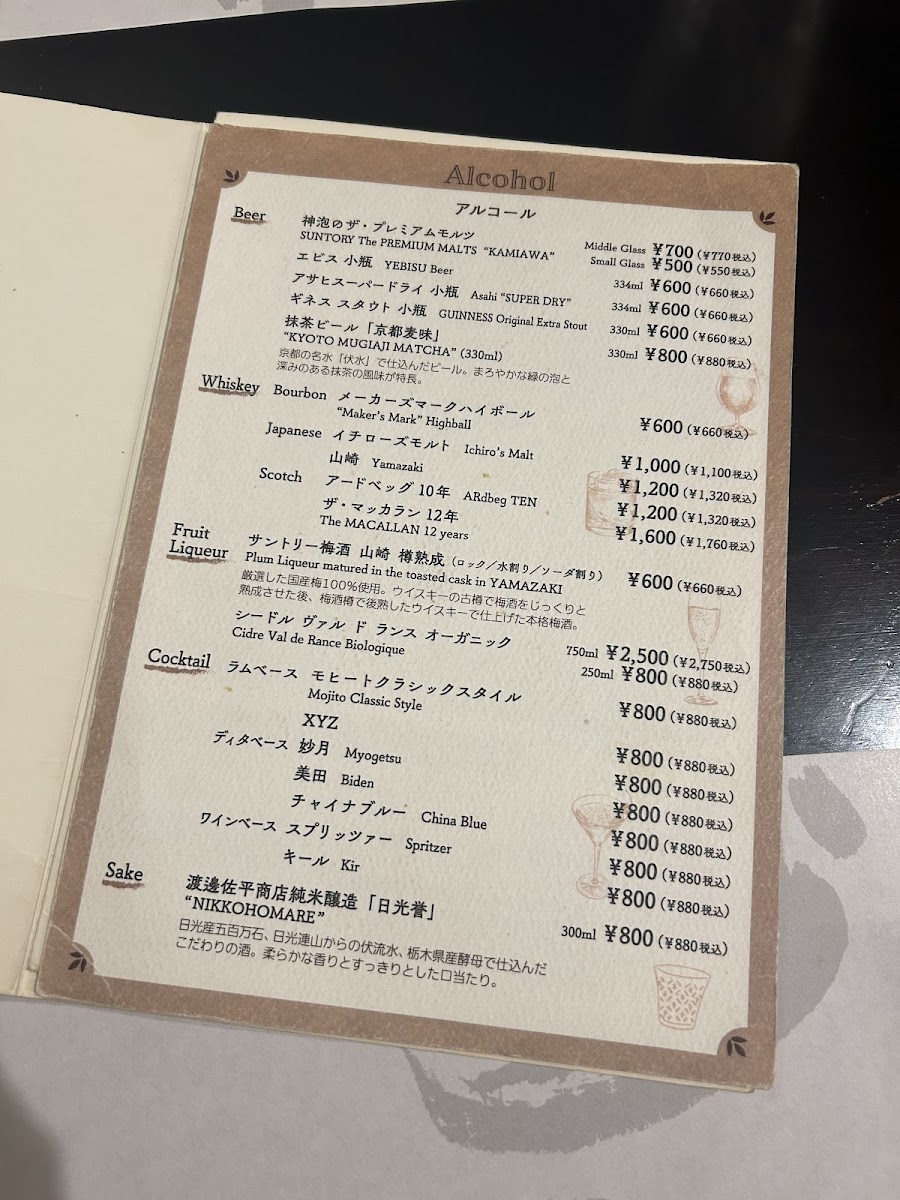 Alcohol
アルコール
Beer
神泡のザ・プレミアムモルツ Middle Glass ¥700 (¥770税込)
SUNTORY The PREMIUM MALTS "KAMIAWA" Small Glass ¥500 (¥550税込)
エビス 小瓶 YEBISU Beer 334ml ¥600 (¥660税込)
アサヒスーパードライ 小瓶 Asahi "SUPER DRY" 334ml ¥600 (¥660税込)
ギネス スタウト 小瓶 GUINNESS Original Extra Stout 330ml ¥600 (¥660税込)
抹茶ビール「京都麦味」 330ml ¥800 (¥880税込)
"KYOTO MUGIAJI MATCHA" (330ml)
京都の名水「伏水」で仕込んだビール。まろやかな緑の泡と
深みのある抹茶の風味が特長。
Whiskey
Bourbon メーカーズマークハイボール ¥600 (¥660税込)
"Maker's Mark" Highball
Japanese イチローズモルト Ichiro's Malt ¥1,000 (¥1,100税込)
山崎 Yamazaki ¥1,200 (¥1,320税込)
Scotch アードベッグ 10年 ARdbeg TEN ¥1,200 (¥1,320税込)
ザ・マッカラン 12年 ¥1,600 (¥1,760税込)
The MACALLAN 12 years
Fruit
Liqueur
サントリー梅酒 山崎 樽熟成 (ロック／水割り／ソーダ割り) ¥600 (¥660税込)
Plum Liqueur matured in the toasted cask in YAMAZAKI
厳選した国産梅100%使用。ウイスキーの古樽で梅酒をじっくりと
熟成させた後、梅酒樽で後熟したウイスキーで仕上げた本格梅酒。
シードル ヴァル ド ランス オーガニック 750ml ¥2,500 (¥2,750税込)
Cidre Val de Rance Biologique 250ml ¥800 (¥880税込)
Cocktail
ラムベース モヒートクラシックスタイル ¥800 (¥880税込)
Mojito Classic Style
XYZ ¥800 (¥880税込)
ディタベース 妙月 Myogetsu ¥800 (¥880税込)
美田 Biden ¥800 (¥880税込)
チャイナブルー China Blue ¥800 (¥880税込)
ワインベース スプリッツァー Spritzer ¥800 (¥880税込)
キール Kir ¥800 (¥880税込)
Sake
渡邊佐平商店純米醸造「日光誉」 300ml ¥800 (¥880税込)
"NIKKOHOMARE"
日光産五百万石、日光連山からの伏流水、栃木県産酵母で仕込んだ
こだわりの酒。柔らかな香りとすっきりとした口当たり。